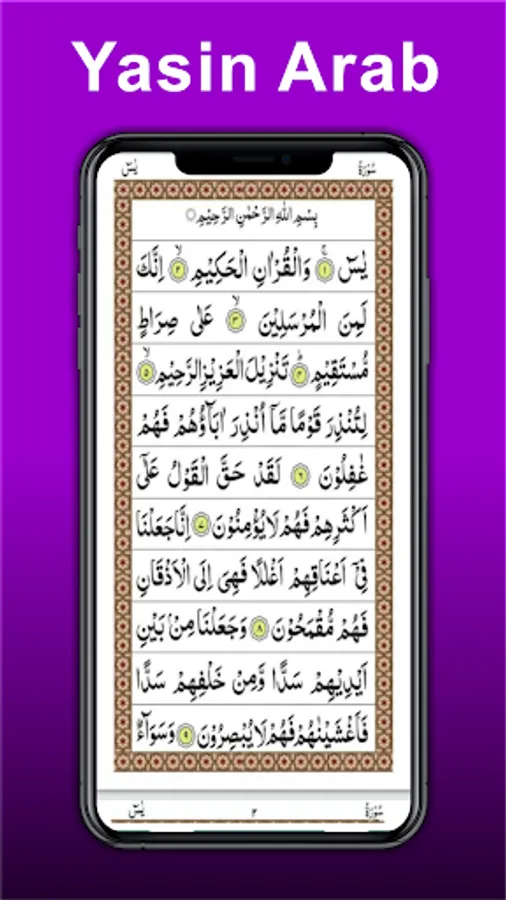 Yasin Arab
يٰسٓ
سُوْرَةُ
بِسْمِ اللّٰهِ الرَّحْمٰنِ الرَّحِيْمِ ○
يٰسٓ ۚ ﴿۱﴾ وَالْقُرْاٰنِ الْحَكِيْمِ ۙ ﴿۲﴾ اِنَّكَ
لَمِنَ الْمُرْسَلِيْنَ ۙ ﴿۳﴾ عَلٰى صِرَاطٍ
مُّسْتَقِيْمٍ ؕ ﴿۴﴾ تَنْزِيْلَ الْعَزِيْزِ الرَّحِيْمِ ۙ ﴿۵﴾
لِتُنْذِرَ قَوْمًا مَّاۤ اُنْذِرَ اٰبَآؤُهُمْ فَهُمْ
غٰفِلُوْنَ ﴿۶﴾ لَقَدْ حَقَّ الْقَوْلُ عَلٰٓى
اَكْثَرِهِمْ فَهُمْ لَا يُؤْمِنُوْنَ ﴿۷﴾ اِنَّا جَعَلْنَا
فِيْۤ اَعْنَاقِهِمْ اَغْلٰلًا فَهِىَ اِلَى الْاَذْقَانِ
فَهُمْ مُّقْمَحُوْنَ ﴿۸﴾ وَجَعَلْنَا مِنْۢ بَيْنِ
اَيْدِيْهِمْ سَدًّا وَّمِنْ خَلْفِهِمْ سَدًّا
فَاَغْشَيْنٰهُمْ فَهُمْ لَا يُبْصِرُوْنَ ﴿۹﴾ وَسَوَآءٌ
يٰسٓ
۲
سُوْرَةُ